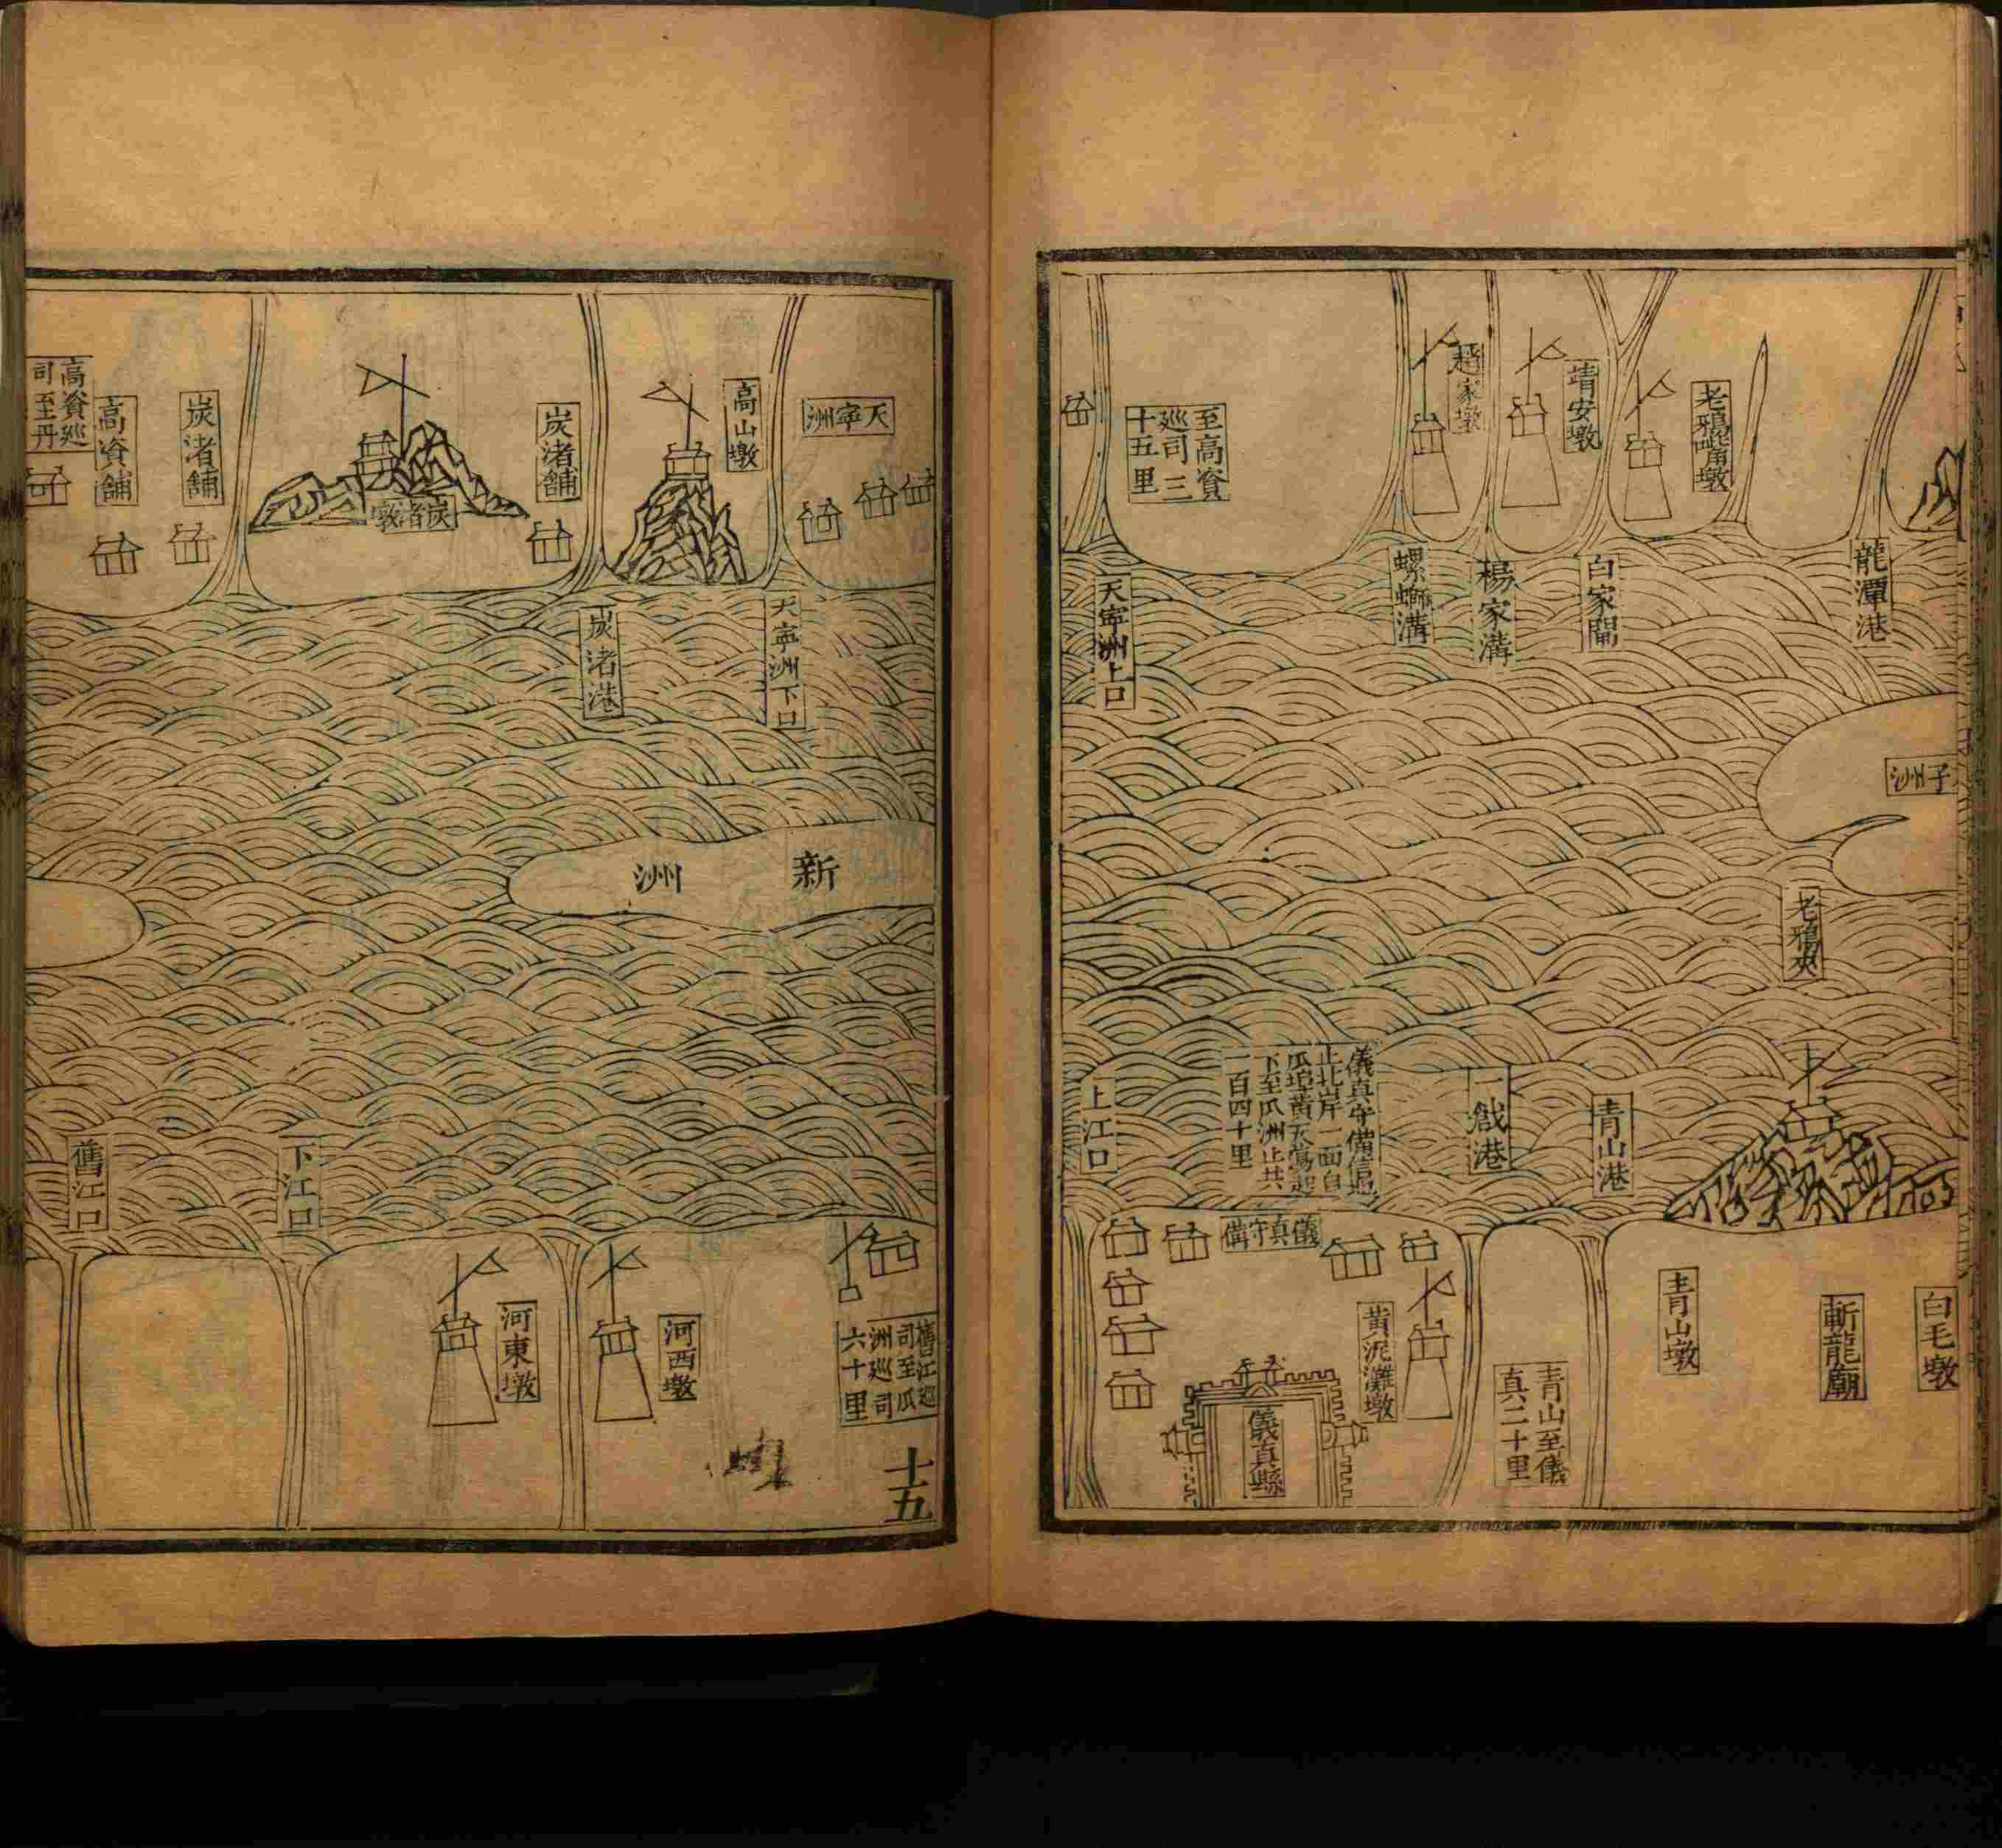 龍潭港
老鴉嘴墩
靖安墩
白家閘
趙家墩
楊家溝
螺螄溝
至高資
巡司三
十五里
天寧洲上口
子洲
老鴉夾
白毛墩
斬龍廟
青山墩
青山港
青山至儀
真二十里
一戧港
黃泥灘墩
儀真守備信地
止北岸一面自
瓜埠黃天蕩起
下至瓜洲止共
一百四十里
儀真守備
儀真縣
上江口
天寧洲
天寧洲下口
高山墩
炭渚港
炭渚舖
炭渚墩
炭渚舖
高資舖
高資巡
司至丹
新洲
舊江巡
司至瓜
洲巡司
六十里
十五
河西墩
河東墩
下江口
舊江口